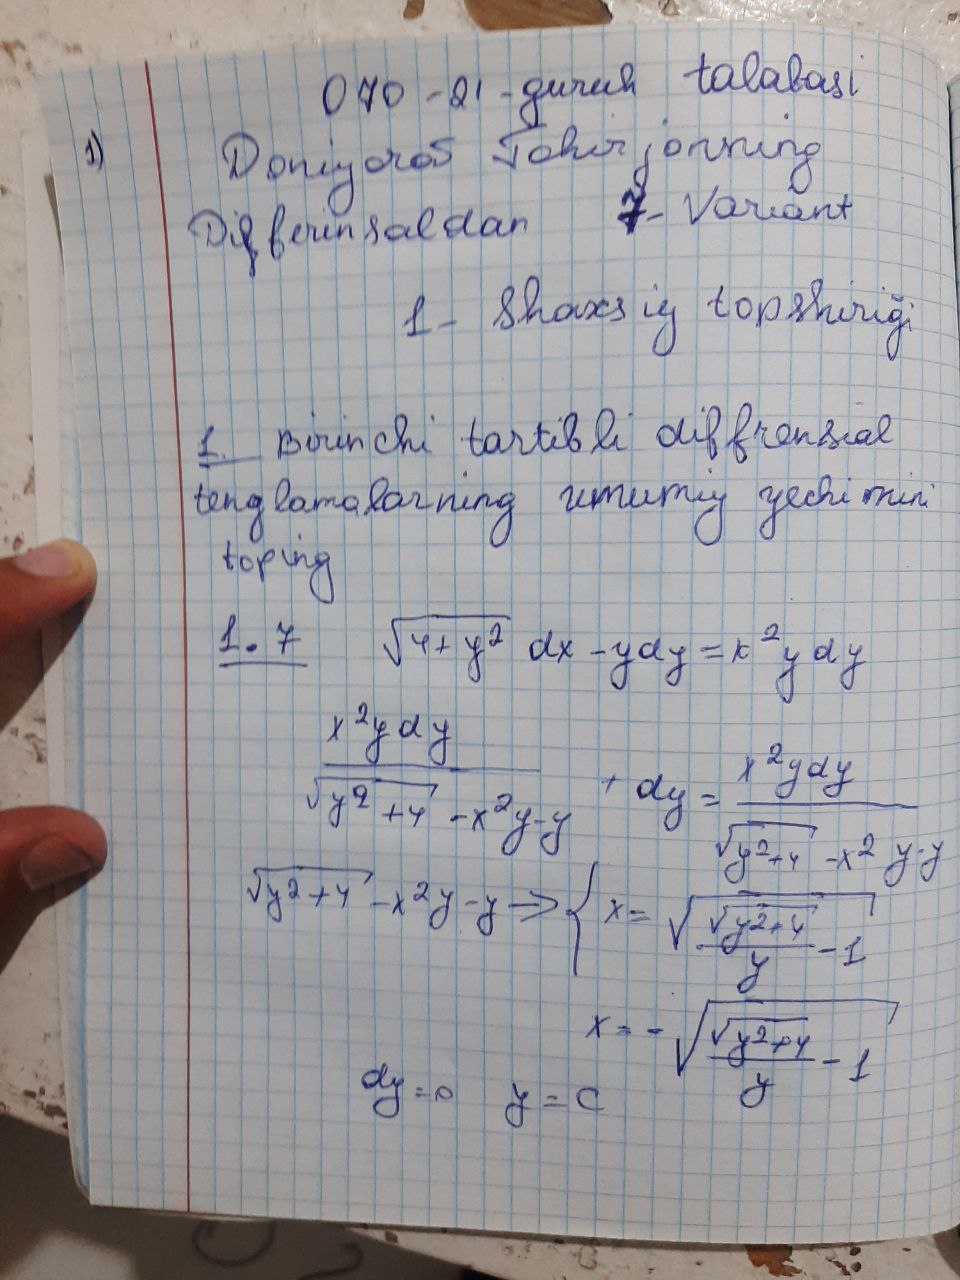 070-21-guruh talabasi
1) Doniyorov Tohirjonning
Differinsaldan 7-Variant
1- Shaxsiy topshirig'i
1. Birinchi tartibli diffrensial
tenglamalarning umumiy yechimini
toping
1.7 √(4+y²) dx - ydy = x²y dy
x²y dy / (√(y²+4) - x²y-y) + dy = x²ydy / (√(y²+4) - x²y-y)
√(y²+4) - x²y-y => { x = √(√(y²+4)/y - 1)
x = - √(√(y²+4)/y - 1)
dy = 0 y = C